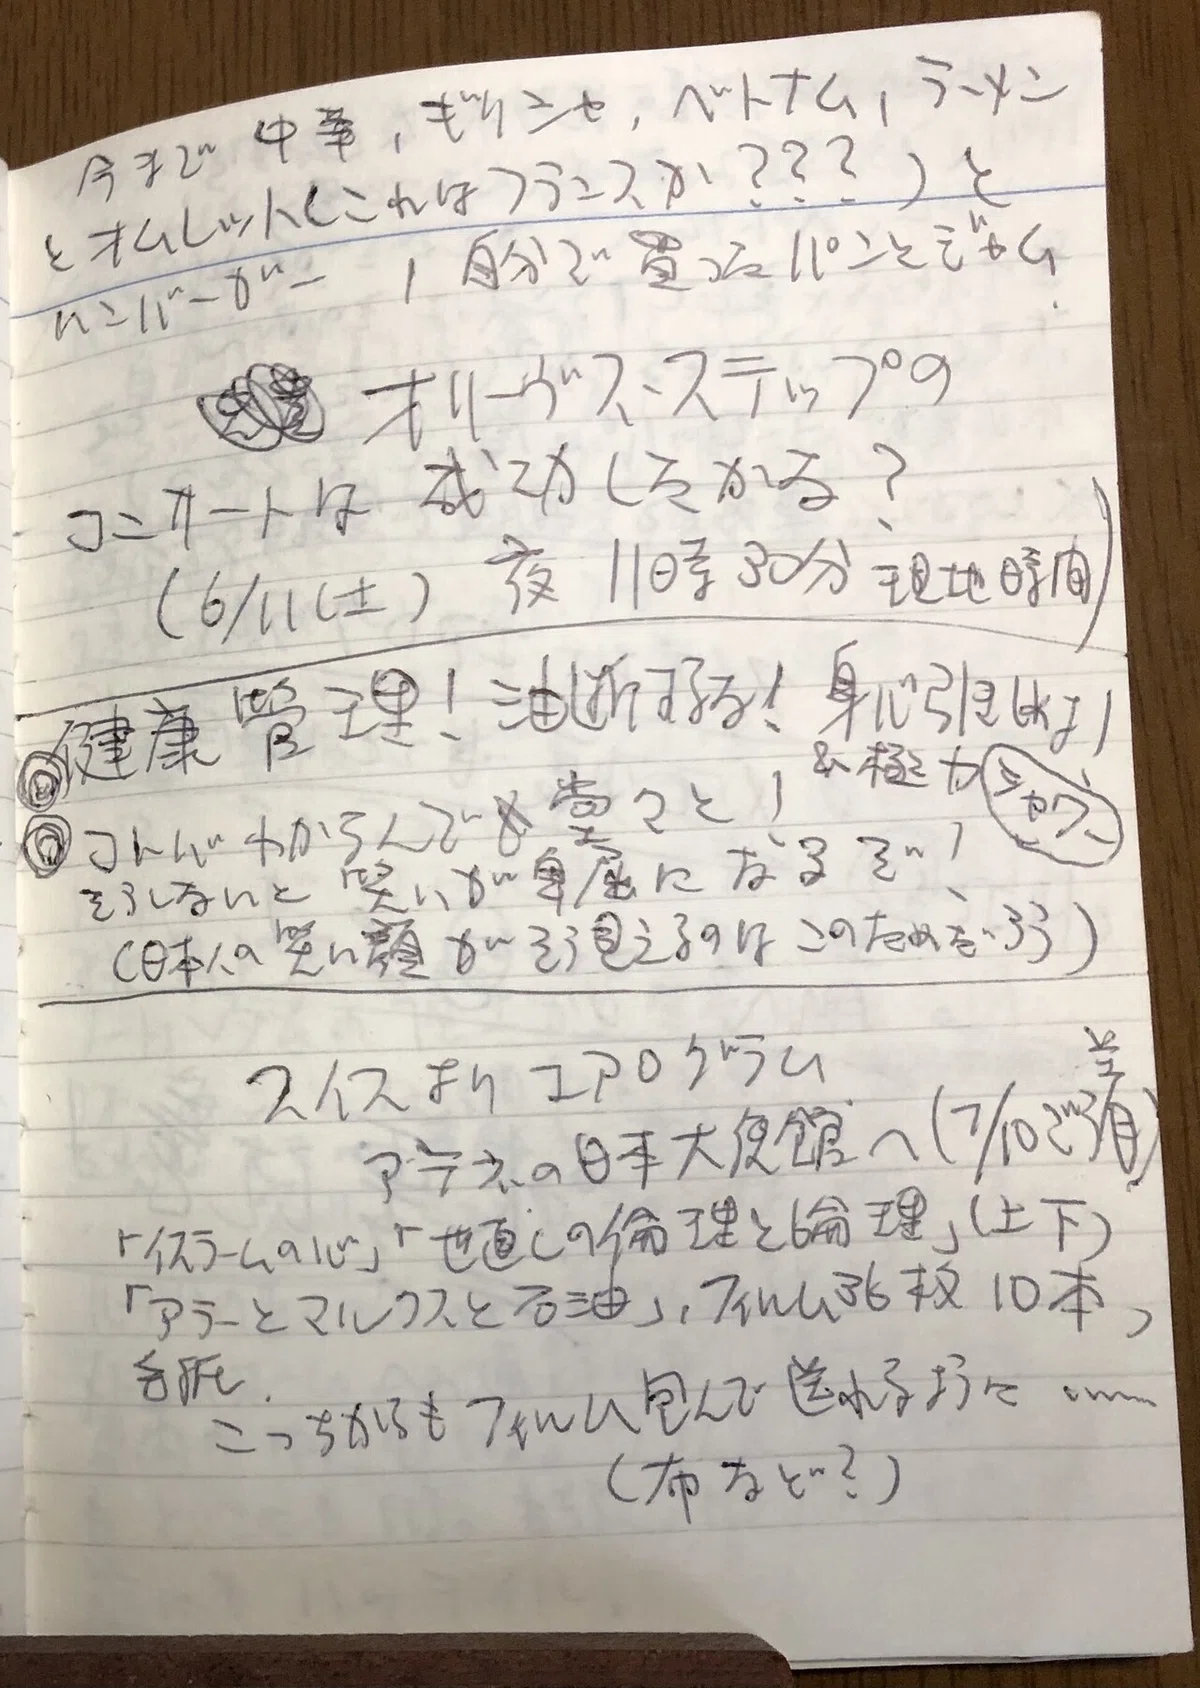 今まで中華，ギリシャ，ベトナム，ラーメン
とオムレット（これはフランスか？？？）と
ハンバーガー，自分で買ったパンとジャム．
オリーヴス・ステップの
コンサートは成功したかな？
（6/11（土）夜11時30分現地時間）
健康管理！油断するな！身心引きしめよ！
&極力
シャワー
コトバわからんでも堂々と！
そうしないと笑いが卑屈になるぞ！
（日本人の笑い顔がそう見えるのはこのためだろう）
スイスよりエアログラム
アテネの日本大使館へ（7/10ごろ着）
「イスラームの心」「世直しの倫理と論理」（上下）
「アラーとマルクスと石油」，フィルム36枚10本，
こっちからもフィルム包んで送れるように……
（布など？）